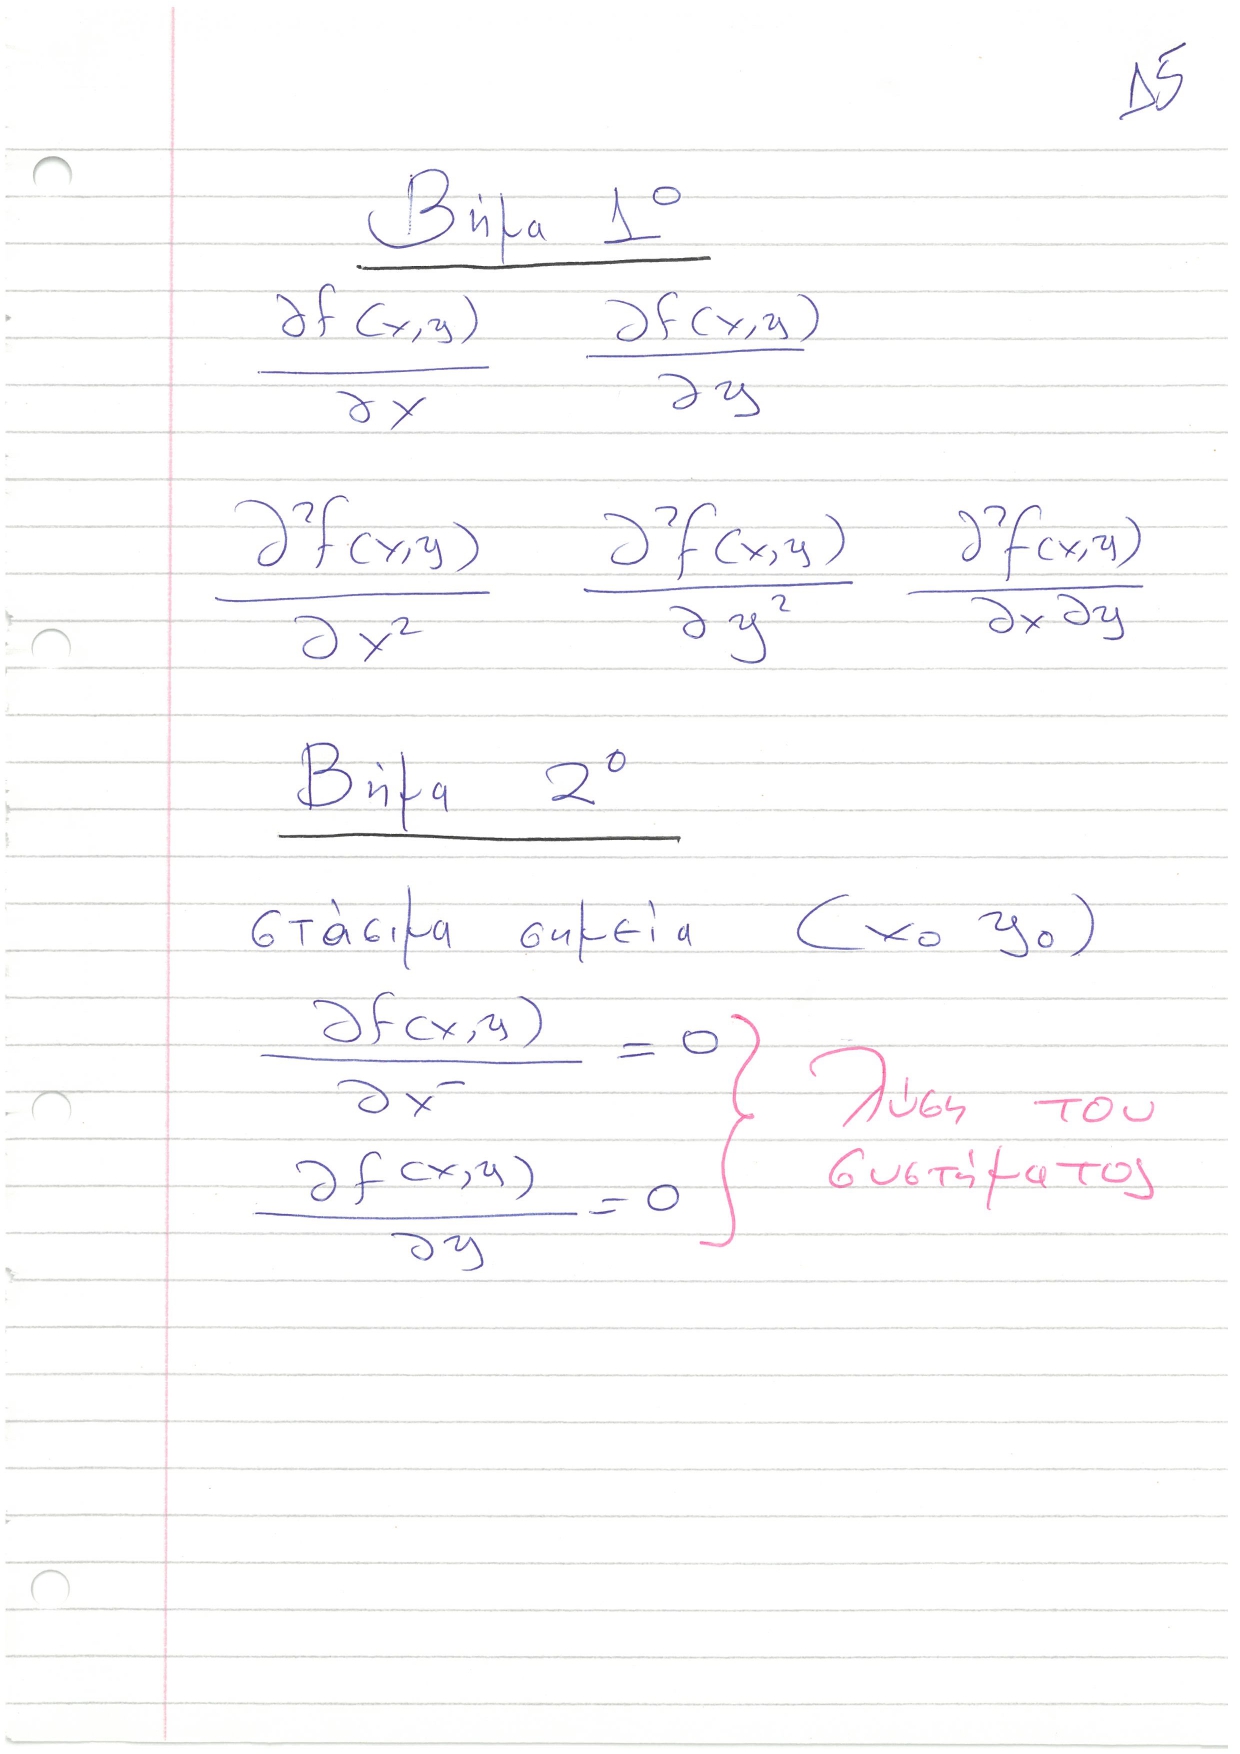 Δ5
Βήμα 1º
∂f(x,y)/∂x ∂f(x,y)/∂y
∂²f(x,y)/∂x² ∂²f(x,y)/∂y² ∂²f(x,y)/∂x∂y
Βήμα 2º
στάσιμα σημεία (x₀ y₀)
∂f(x,y)/∂x = 0
∂f(x,y)/∂y = 0
λύση του
συστήματος